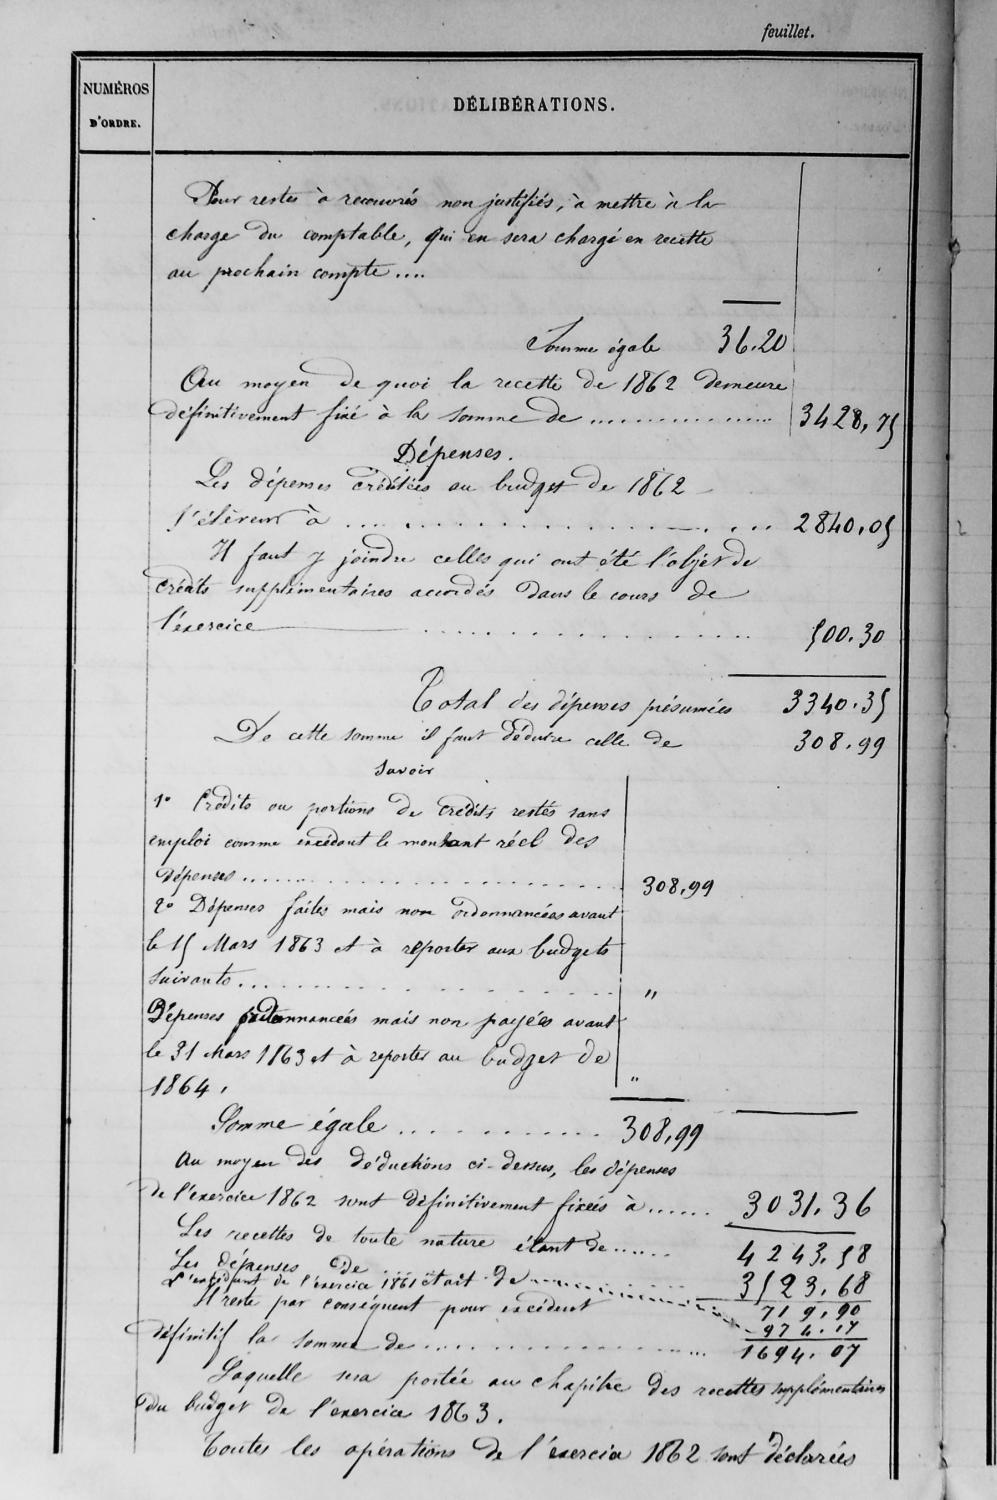 feuillet.
NUMÉROS
D'ORDRE.
DÉLIBÉRATIONS.
Pour restes à recouvrés non justifiés, à mettre à la
charge du comptable, qui en sera chargé en recette
au prochain compte ....
Somme égale 36.20
Au moyen de quoi la recette de 1862 demeure
définitivement fixé à la somme de ................ 3428,75
Dépenses.
Les dépenses créditées au budget de 1862
s'élèvent à ................ 2840,05
Il faut y joindre celles qui ont été l'objet de
crédits supplémentaires accordés dans le cours de
l'exercice ................ 500.30
Total des dépenses présumées 3340.35
De cette somme il faut déduire celle de 308.99
Savoir
1° Crédits ou portions de crédits restés sans
emploi comme excédant le montant réel des
dépenses ................ 308,99
2° Dépenses faites mais non ordonnancées avant
le 15 Mars 1863 et à reporter aux budgets
suivants ................ "
Dépenses ordonnancées mais non payées avant
le 31 Mars 1863 et à reporter au budget de
1864. "
Somme égale ................ 308,99
Au moyen des déductions ci-dessus, les dépenses
de l'exercice 1862 sont définitivement fixées à ...... 3031.36
Les recettes de toute nature étant de ....... 4243.58
Les dépenses de 3523.68
L'excédant de l'exercice 1861 était de 719.90
Il reste par conséquent pour excédent 974.17
définitif la somme de ................ 1694.07
Laquelle sera portée au chapitre des recettes supplémentaires
du budget de l'exercice 1863.
Toutes les opérations de l'exercice 1862 sont déclarées